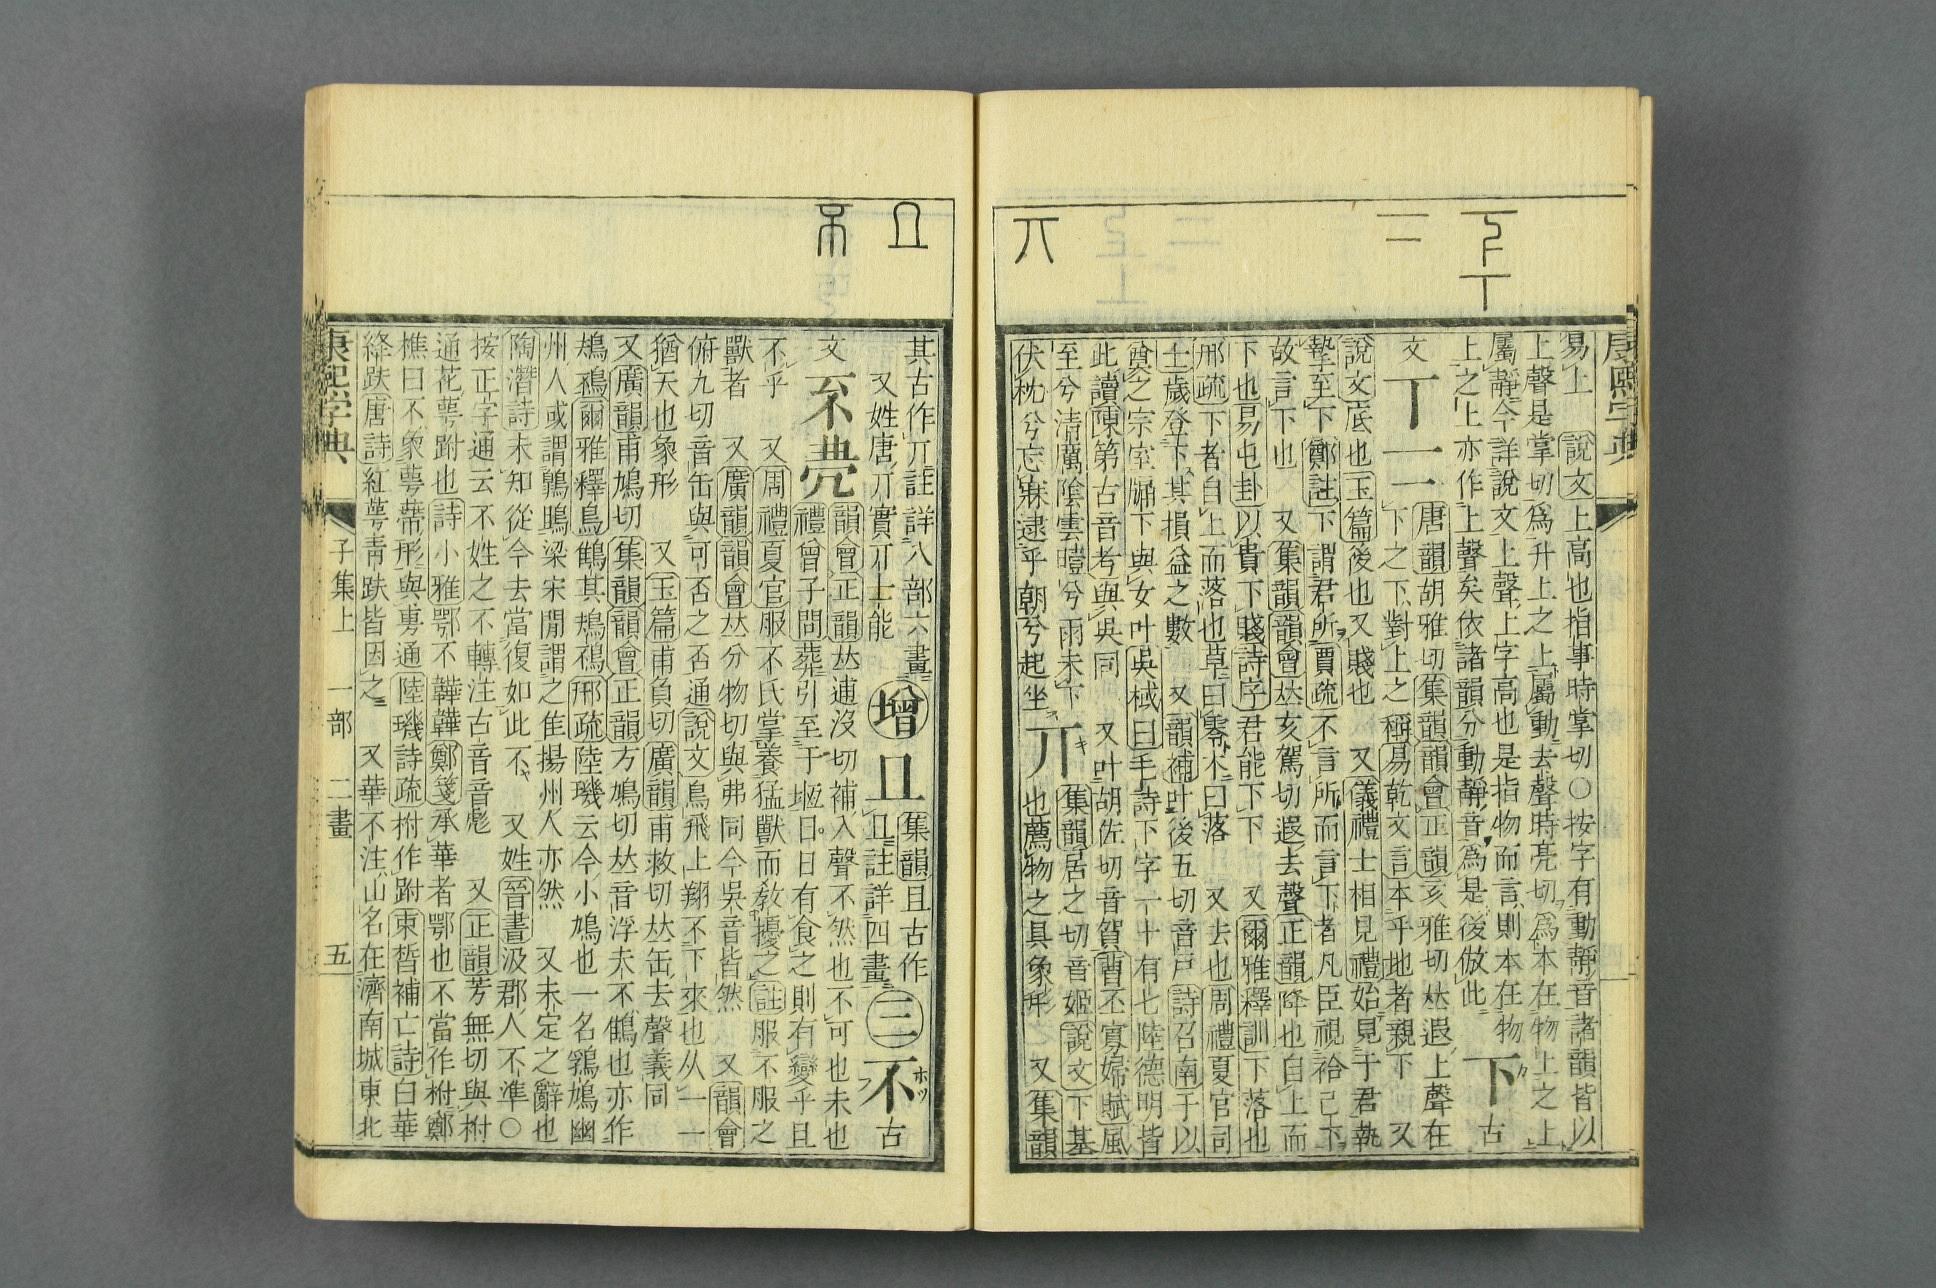 易上 說文上高也指事時掌切〇按字有動靜音諸韻皆以
上聲是掌切爲升上之上屬動去聲時亮切爲本在物上之上
屬靜今詳說文上聲上字高也是指物而言則本在物
上之上亦作上聲矣依諸韻分動靜音爲是後倣此 下 古
文丅二 唐韻胡雅切集韻韻會正韻亥雅切𠀤遐上聲在
下之下對上之稱易乾文言本乎地者親下 又
說文底也玉篇後也又賤也 又儀禮士相見禮始見于君執
摯至下鄭註下謂君所賈疏不言所而言下者凡臣視袷已下
故言下也 又集韻韻會𠀤亥駕切遐去聲正韻降也自上而
下也易屯卦以貴下賤詩序君能下下 又爾雅釋訓下落也
邢疏下者自上而落也草曰零木曰落 又去也周禮夏官司
士歲登下其損益之數 又韻補叶後五切音戸詩召南于以
奠之宗室牖下與女叶吳棫曰毛詩下字一十有七陸德明皆
此讀陳第古音考與吳同 又叶胡佐切音賀酉丕寡婦賦風
至兮淸厲陰雲曀兮雨未下 集韻居之切音姬說文下基
伏枕兮忘寐逮乎朝兮起坐 丌 也薦物之具象形 又集韻
其古作丌註詳八部六畫 增 𠀃 集韻且古作
又姓唐丌實丌士能 𠀃註詳四畫 三 不 古
文 韻會正韻𠀤逋沒切補入聲不然也不可也未也
禮曾子問葬引至于堩日日有食之則有變乎且
不乎 又周禮夏官服不氏掌養猛獸而敎擾之註服不服之
獸者 又廣韻韻會𠀤分物切與弗同今吳音皆然 又韻會
俯九切音缶與可否之否通說文鳥飛上翔不下來也从一一
猶天也象形 又玉篇甫負切廣韻甫救切𠀤缶去聲義同
又廣韻甫鳩切集韻韻會正韻方鳩切𠀤音浮夫不鵻也亦作
鳺鴀爾雅釋鳥鵻其鳺鴀邢疏陸璣云今小鳩也一名鶉鳩幽
州人或謂鷱鵖梁宋閒謂之隹揚州人亦然 又未定之辭也
陶潛詩未知從今去當復如此不 又姓晉書汲郡人不準〇
按正字通云不姓之不轉注古音音彪 又正韻芳無切與柎
通花萼跗也詩小雅鄂不韡韡鄭箋承華者鄂也不當作柎鄭
樵曰不象萼蔕形與旉通陸璣詩疏柎作跗束晳補亡詩白華
絳趺唐詩紅萼靑趺皆因之 又華不注山名在濟南城東北
康熙字典
子集上 一部 二畫
五